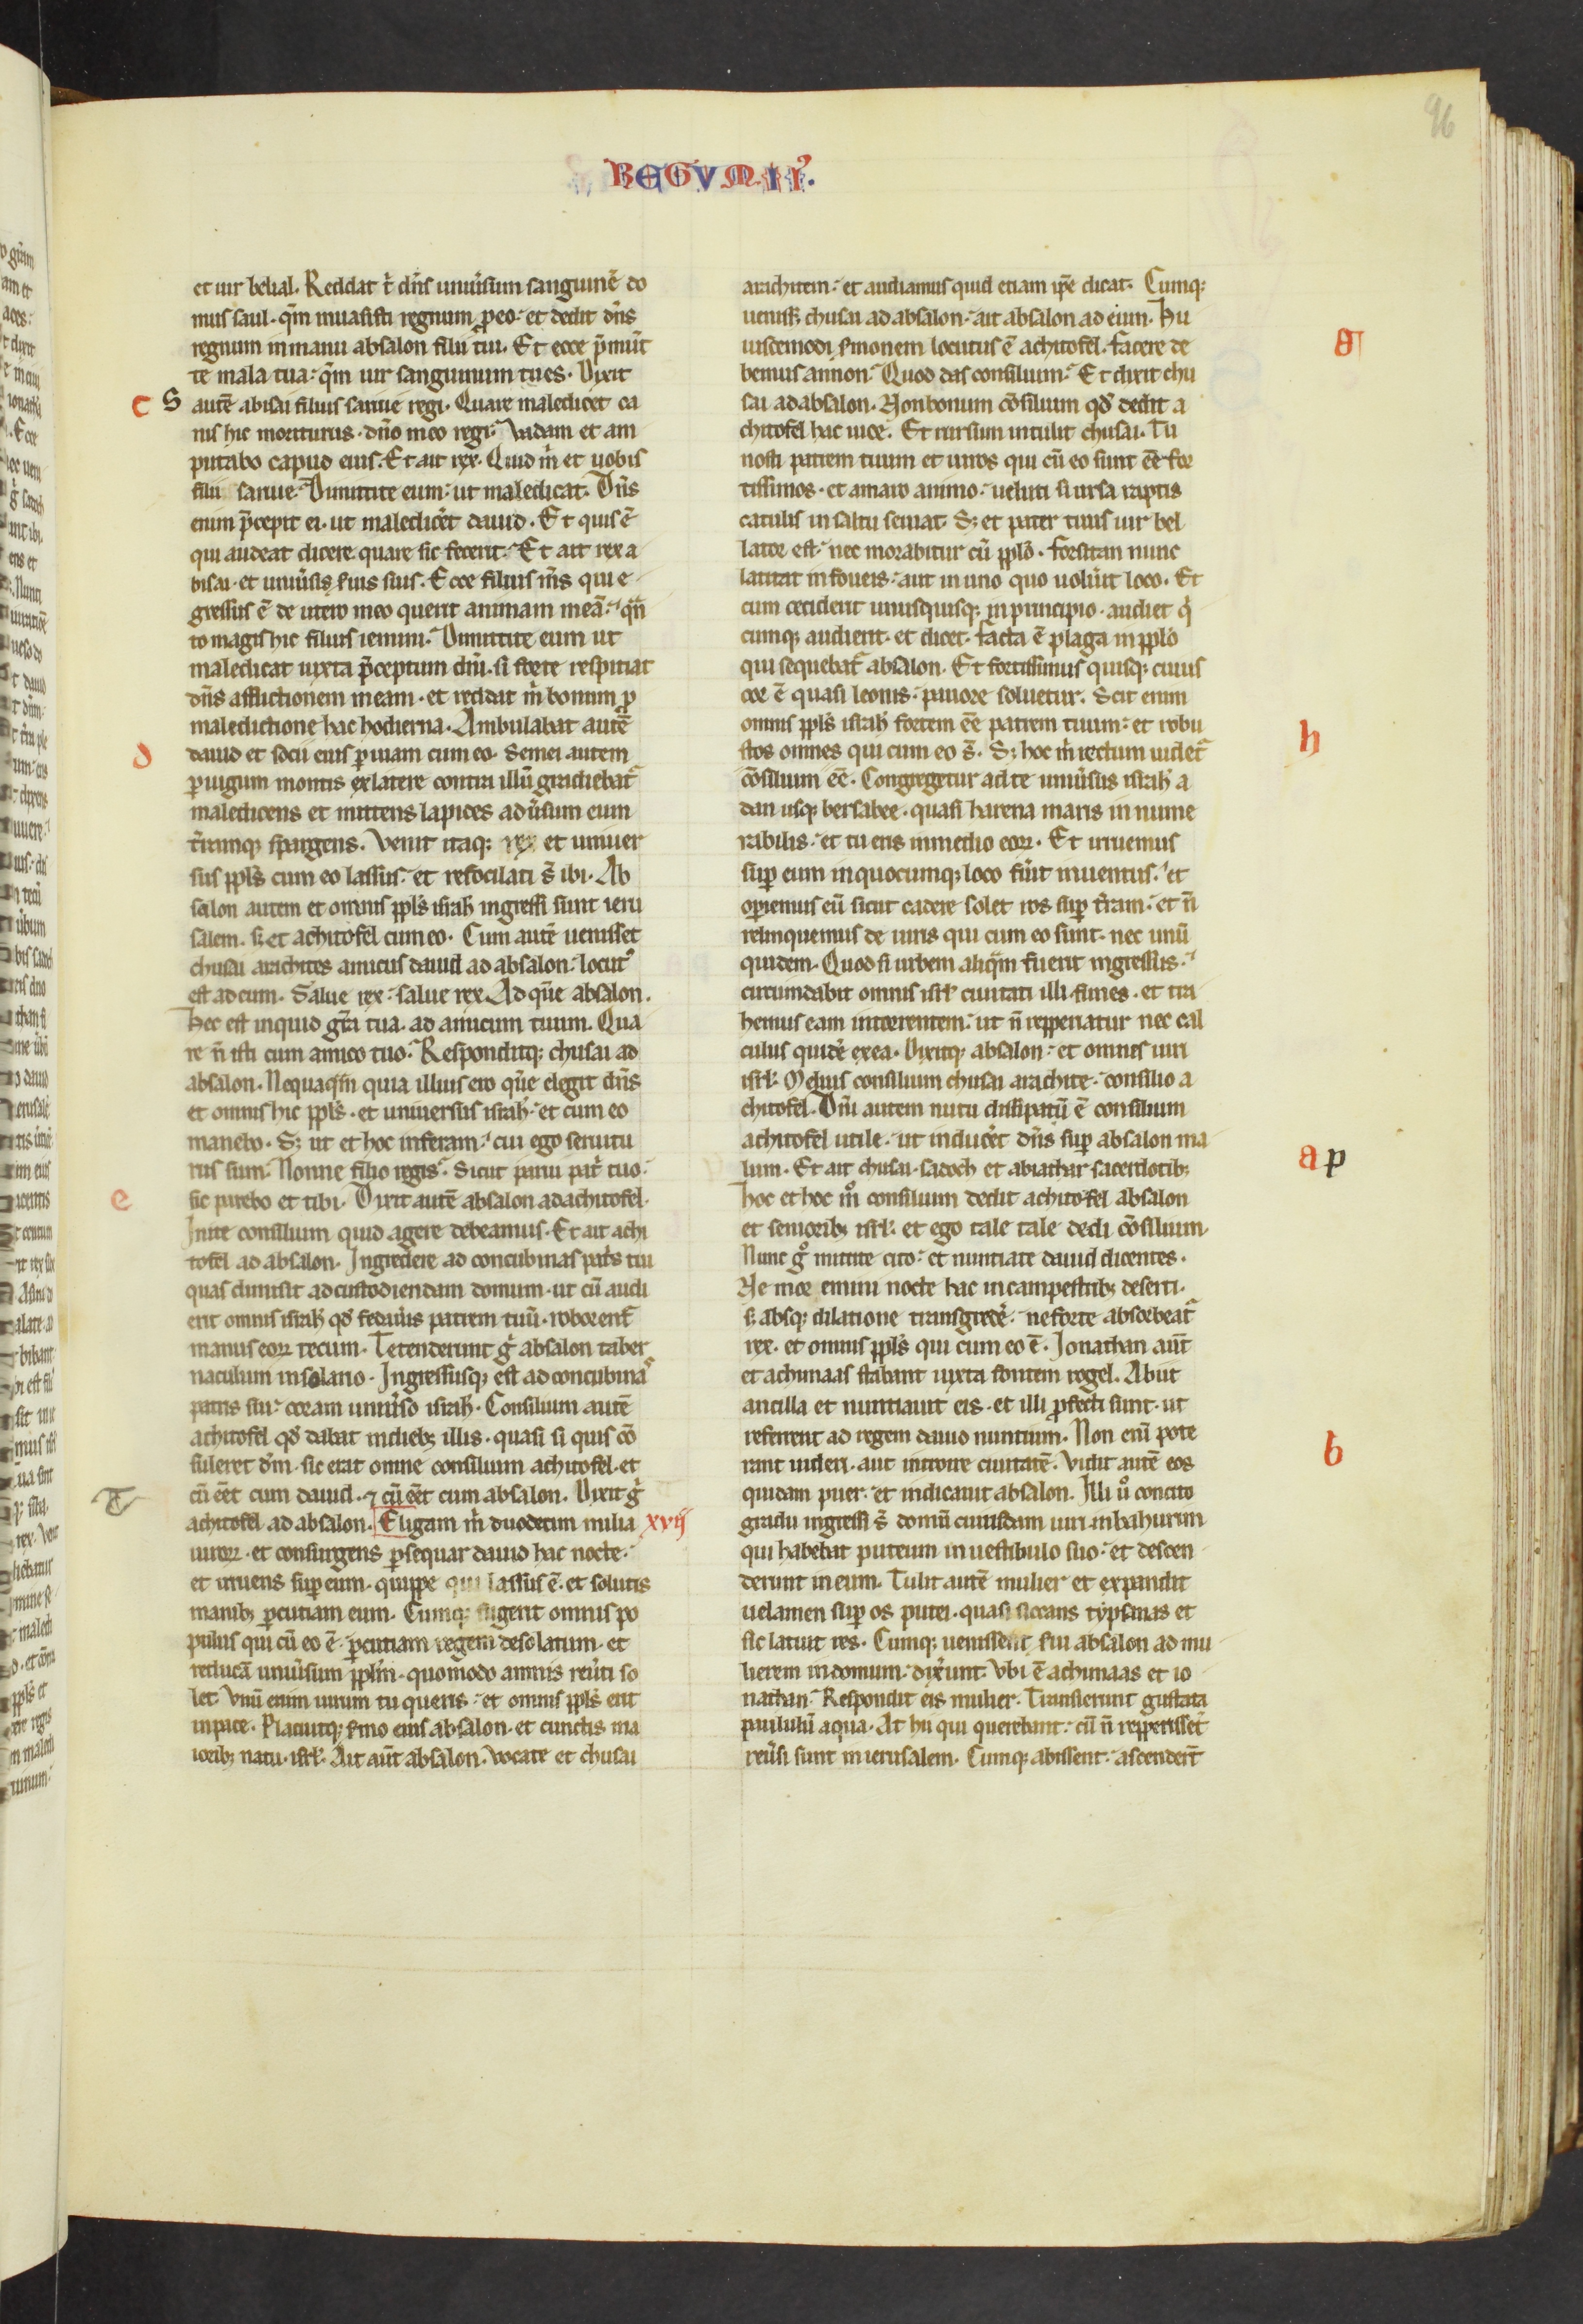 96
REGVM II.
et uir belial. Reddat t̉ dn̄s uniũsum sanguinē do
mus saul. qm̄ inuasisti regnum p̱ eo. et dedit dn̄s
regnum in manu absalon filii tui. Et ecce p̄mūt
te mala tua. qm̄ uir sanguinum tu es. Dixit
c S autē abisai filius saruie regi. Quare maledicet ca
nis hic moriturus. dn̄o meo regi. Vadam et am
putabo capud eius. Et ait rex. Quid m̉ et uobis
filii saruie. Dimittite eum. ut maledicat. Dn̄s
enim p̄cepit ei. ut malediceret dauid. Et quis ē
qui audeat dicere quare sic fecerit. Et ait rex a
bisai. et uniũsis ẜuis suis. Ecce filius mīs qui e
gressus ē de utero meo querit animam meā. qn̄
to magis hic filius iemini. Dimittite eum ut
maledicat iuxta p̄ceptum dn̄i. si forte respiciat
dn̄s afflictionem meam. et reddat m̉ bonum p̱
maledictione hac hodierna. Ambulabat autē
d dauid et socii eius p̱ uiam cum eo. Semei autem
p̱ iugum montis ex latere contra illū gradiebat̉
maledicens et mittens lapides adũsum eum
t̃ramq; spargens. Venit itaq; rex et uniuer
sus ppl̄s cum eo lassus. et refocilati s̄ ibi. Ab
salon autem et omnis ppl̄s isrl̄ ingressi sunt ieru
salem. ẜ et achitofel cum eo. Cum autē uenisset
chusai arachites amicus dauid ad absalon. locut᾽
est ad eum. Salue rex. salue rex. Ad quē absalon.
Hec est inquid gr̄a tua. ad amicum tuum. Qua
re n̄ isti cum amico tuo. Responditq; chusai ad
absalon. Nequaq̄m quia illius ero quē elegit dn̄s
et omnis hic ppl̄s. et uniuersus isrl̄. et cum eo
manebo. S; ut et hoc inferam. cui ego seruitu
rus sum. Nonne filio regis. Sicut parui pat̉ tuo.
e sic parebo et tibi. Dixit autē absalon ad achitofel.
Inite consilium quid agere debeamus. Et ait achi
tofel ad absalon. Ingredere ad concubinas pat̉s tui
quas dimisit ad custodiendam domum. ut cū audi
erit omnis isrl̄ qd̄ fedaũis patrem tuū. roborent̉
manus eorꝝ tecum. Tetenderunt g̉ absalon taber
naculum in solario. Ingressusq; est ad concubinas
patris sui. coram uniũso isrl̄. Consilium autē
achitofel qd̄ dabat in dieb; illis. quasi si quis cō
suleret dm̄. sic erat omne consilium achitofel. et
cū eēt cum dauid. ⁊ cū eēt cum absalon. Dixit g̉
achitofel ad absalon. Eligam m̉ duodecim milia xvij
uirorꝝ. et consurgens p̱sequar dauid hac nocte.
et irruens sup̱ eum. quippe qui lassus ē. et solutis
manib; p̱cutiam eum. Cumq; fugerit omnis po
pulus qui cū eo ē. p̱cutiam regem desolatum. et
reducā uniũsum ppl̄m. quomodo omnis reũti so
let. Vnū enim uirum tu queris. et omnis ppl̄s erit
in pace. Placuitq; ẜmo eius absalon. et cunctis ma
iorib; natu. isrl̄. Ait aūt absalon. Vocate et chusai
arachitem. et audiamus quid etiam ip̄e dicat. Cumq;
uenisset chusai ad absalon. ait absalon ad eum. Hu
g iuscemodi ẜmonem locutus ē achitofel. facere de
bemus an non. Quod das consilium. Et dixit chu
sai ad absalon. Non bonum cōsilium qd̄ dedit a
chitofel hac uice. Et rursum intulit chusai. Tu
nosti patrem tuum et uiros qui cū eo sunt eē for
tissimos. et amaro animo. ueluti si ursa raptis
catulis in saltu seuiat. S; et pater tuus uir bel
lator est. nec morabitur cū ppl̄o. forsitan nunc
latitat in foueis. aut in uno quo uolūit loco. Et
cum ceciderit unusquisq; in principio. audiet q̉
cumq; audierit. et dicet. facta ē plaga in ppl̄o
qui sequebat̉ absalon. Et fortissimus quisq; cuius
cor ē quasi leonis. pauore soluetur. Scit enim
omnis ppl̄s isrl̄ fortem eē patrem tuum. et robu
h stos omnes qui cum eo s̄. S; hoc m̉ rectum uidet̉
cōsilium eē. Congregetur ad te uniũsus isrl̄ a
dan usq; bersabee. quasi harena maris in nume
rabilis. et tu eris in medio eorꝝ. Et irruemus
sup̱ eum in quocumq; loco fũit inuentus. et
operiemus eū sicut cadere solet ros sup̱ t̃ram. et n̄
relinquemus de uiris qui cum eo sunt. nec unū
quidem. Quod si urbem aliq̄m fuerit ingressus.
circumdabit omnis isrl̄ ciuitati illi funes. et tra
hemus eam in torrentem. ut n̄ repperiatur nec cal
culus quidē ex ea. Dixitq; absalon. et omnis uiri
isrl̄. Melius consilium chusai arachite. consilio a
chitofel. Dn̄i autem nutu dissipatū ē consilium
achitofel utile. ut induceret dn̄s sup̱ absalon ma
a p lum. Et ait chusai. sadoch et abiathar sacerdotib;
hoc et hoc m̊ consilium dedit achitofel absalon
etseniorib; isrl̄. et ego tale tale dedi cōsilium.
Nunc g̊ mittite cito. et nuntiate dauid dicentes.
Ne moreris nocte hac in campestrib; deserti.
ẜ absq; dilatione transgredere. ne forte absorbeat̉
rex. et omnis ppl̄s qui cum eo ē. Jonathan aūt
et achimaas stabant iuxta fontem rogel. Abiit
ancilla et nuntiauit eis. et illi p̱fecti sunt. ut
referrent ad regem dauid nuntium. Non eni̅ pote
b rant uideri. aut introire ciuitatē. Vidit autē eos
quidam puer. et indicauit absalon. Illi ů concito
gradu ingressi s̄ domū cuiusdam uiri in bahurim
qui habebat puteum in uestibulo suo. et descen
derunt in eum. Tulit autē mulier et expandit
uelamen sup̱ os putei. quasi siccans typsanas et
sic latuit res. Cumq; uenissent ẜui absalon ad mu
lierem in domum. dixẽunt. Vbi ē achimaas et io
nathan. Respondit eis mulier. Transierunt gustata
paululū aqua. At hii qui querebant. cū n̄ repperisset̄
reũsi sunt in ierusalem. Cumq; abissent. ascendert̄